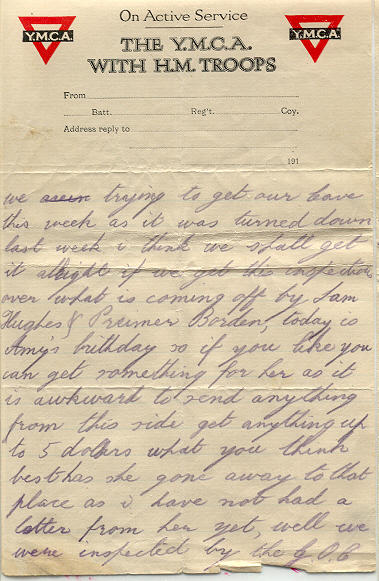 Y.M.C.A. On Active Service Y.M.C.A.
THE Y.M.C.A.
WITH H.M. TROOPS
From
Batt. Reg't. Coy.
Address reply to
191
we trying to get our leave
this week as it was turned down
last week i think we shall get
it allright if we get this inspection
over what is coming off by Sam
Hughes & Preimer Borden, today is
Amy's birthday so if you like you
can get something for her as it
is awkward to send anything
from this side get anything up
to 5 dollars what you think
best has she gone away to that
place as i have not had a
letter from her yet, well we
were inspected by the G.O.C